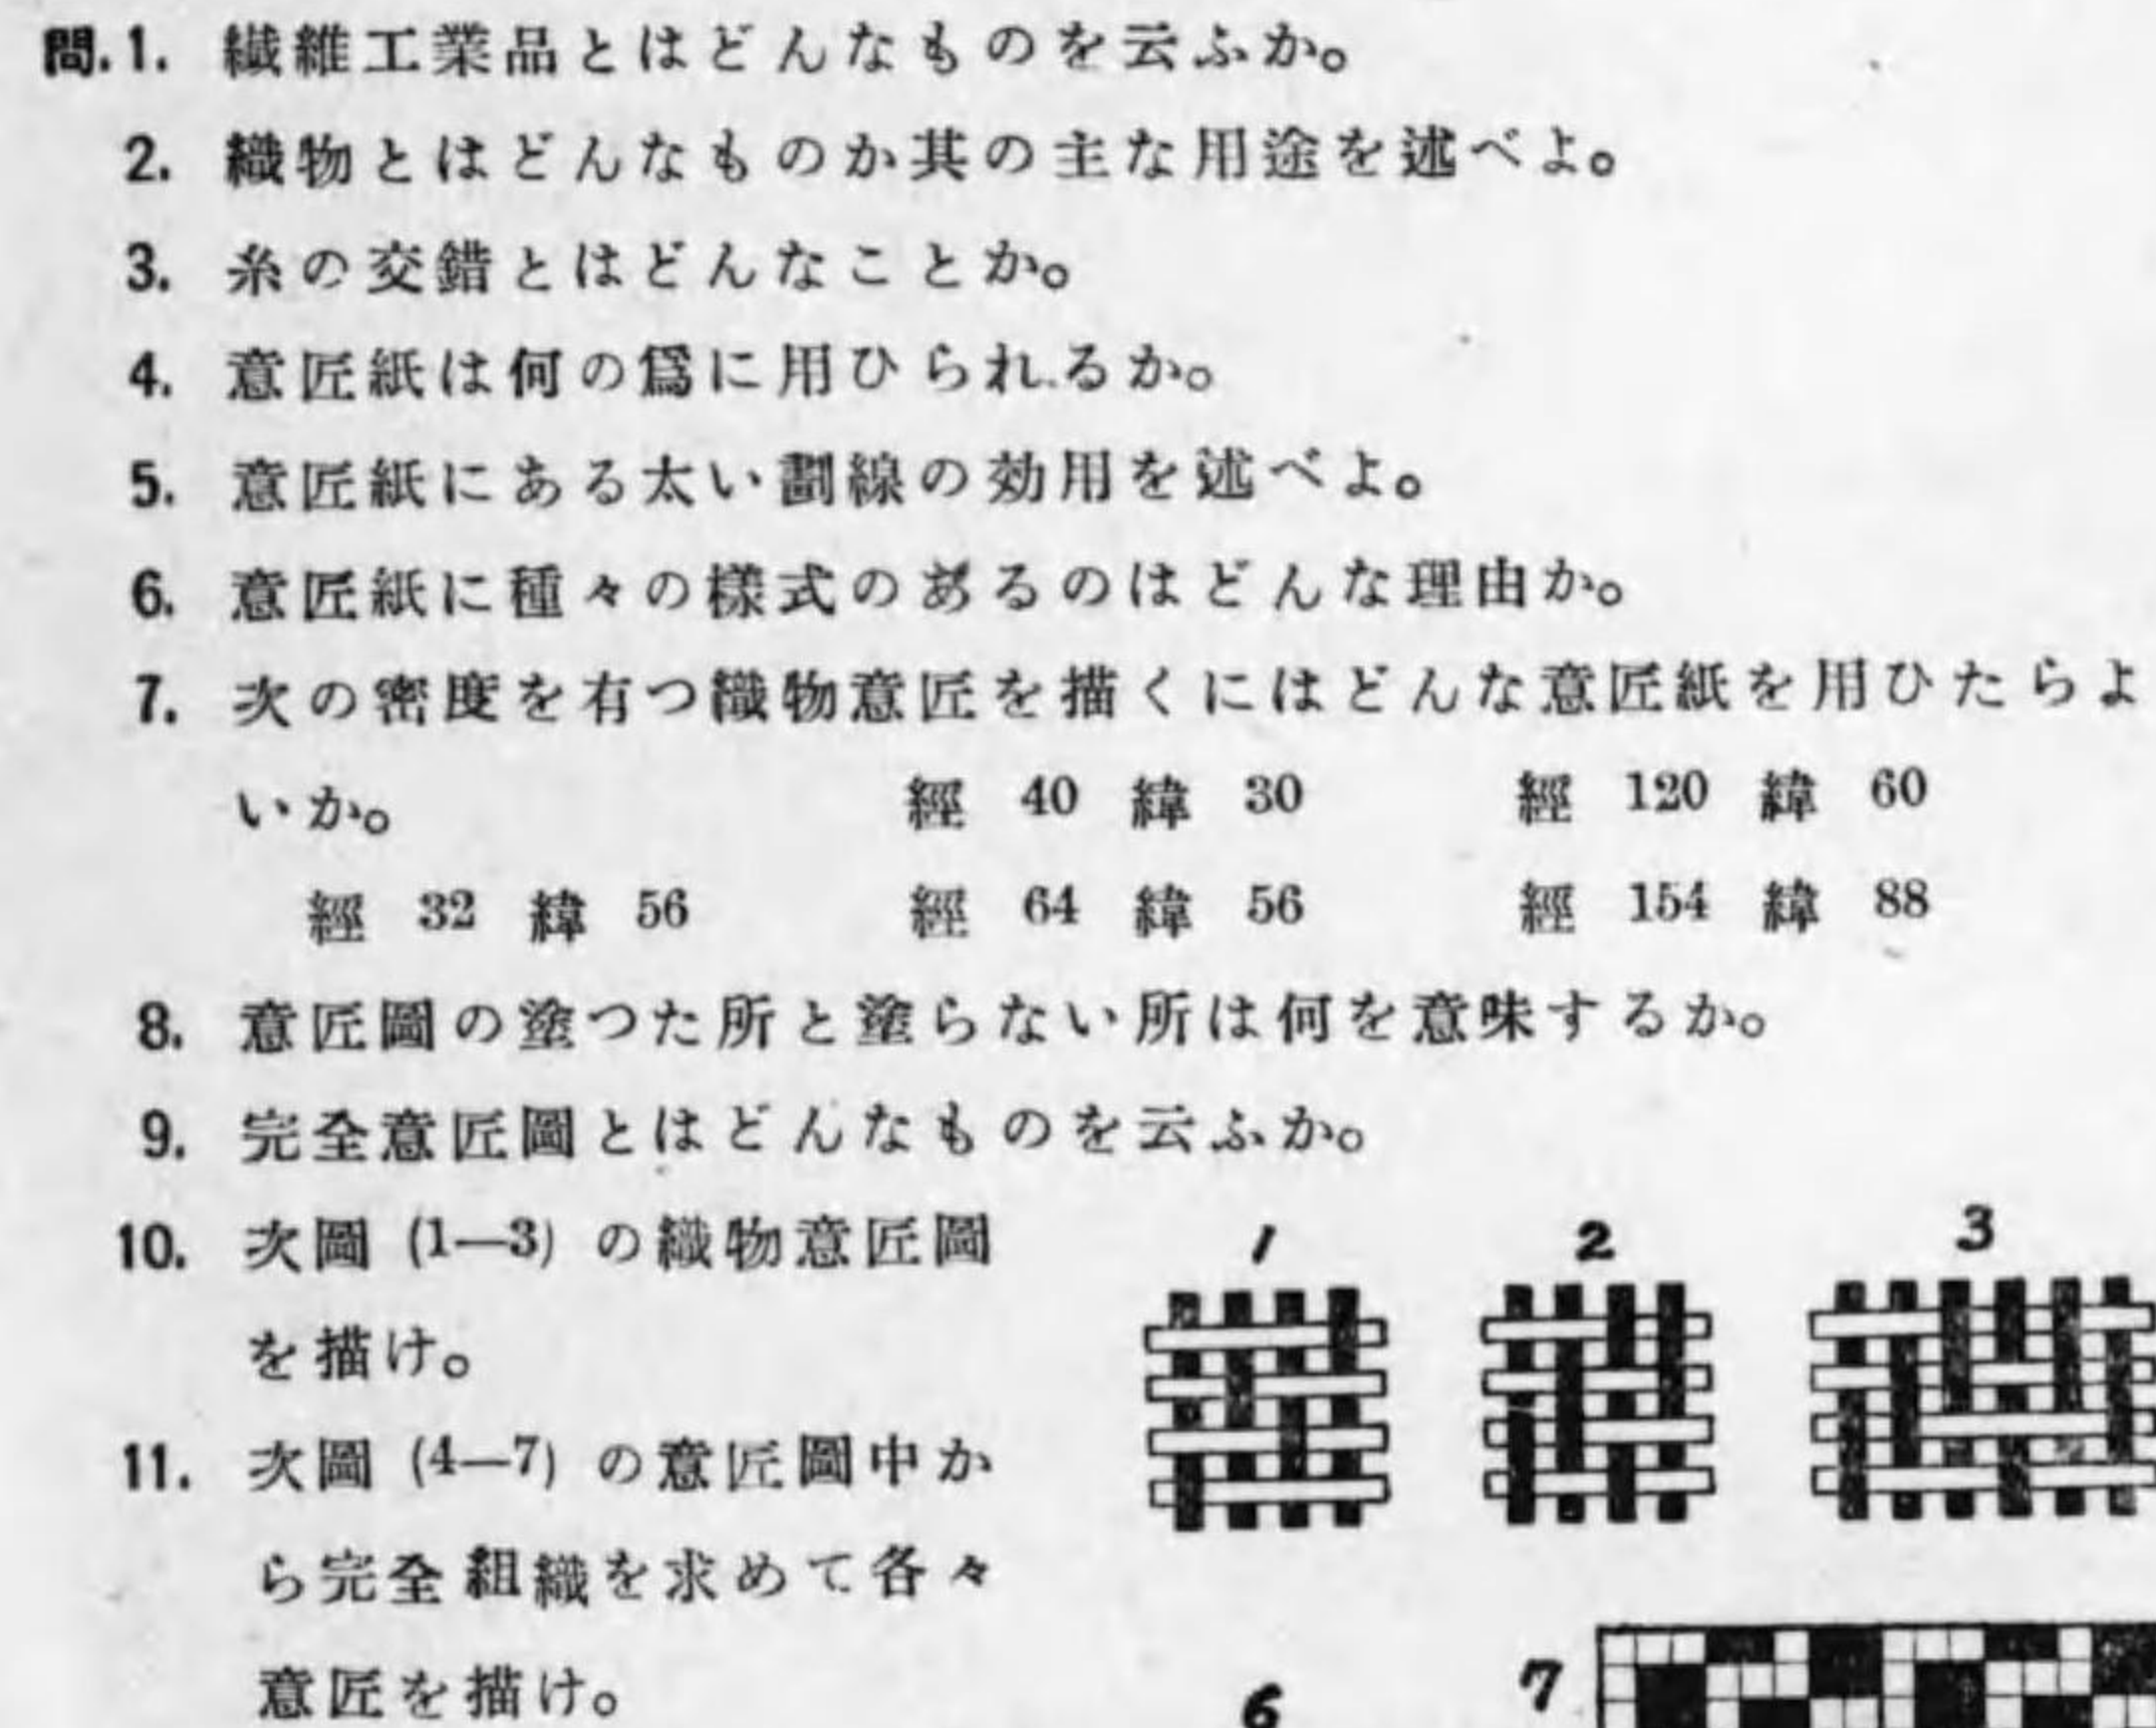 問.1. 纎維工業品とはどんなものを云ふか。
2. 織物とはどんなものか其の主な用途を述べよ。
3. 糸の交錯とはどんなことか。
4. 意匠紙は何の爲に用ひられるか。
5. 意匠紙にある太い劃線の効用を述べよ。
6. 意匠紙に種々の樣式のあるのはどんな理由か。
7. 次の密度を有つ織物意匠を描くにはどんな意匠紙を用ひたらよ
いか。 經 40 緯 30 經 120 緯 60
經 32 緯 56 經 64 緯 56 經 154 緯 88
8. 意匠圖の塗つた所と塗らない所は何を意味するか。
9. 完全意匠圖とはどんなものを云ふか。
10. 次圖 (1—3) の織物意匠圖
を描け。
11. 次圖 (4—7) の意匠圖中か
ら完全組織を求めて各々
意匠を描け。
1 2 3
6 7